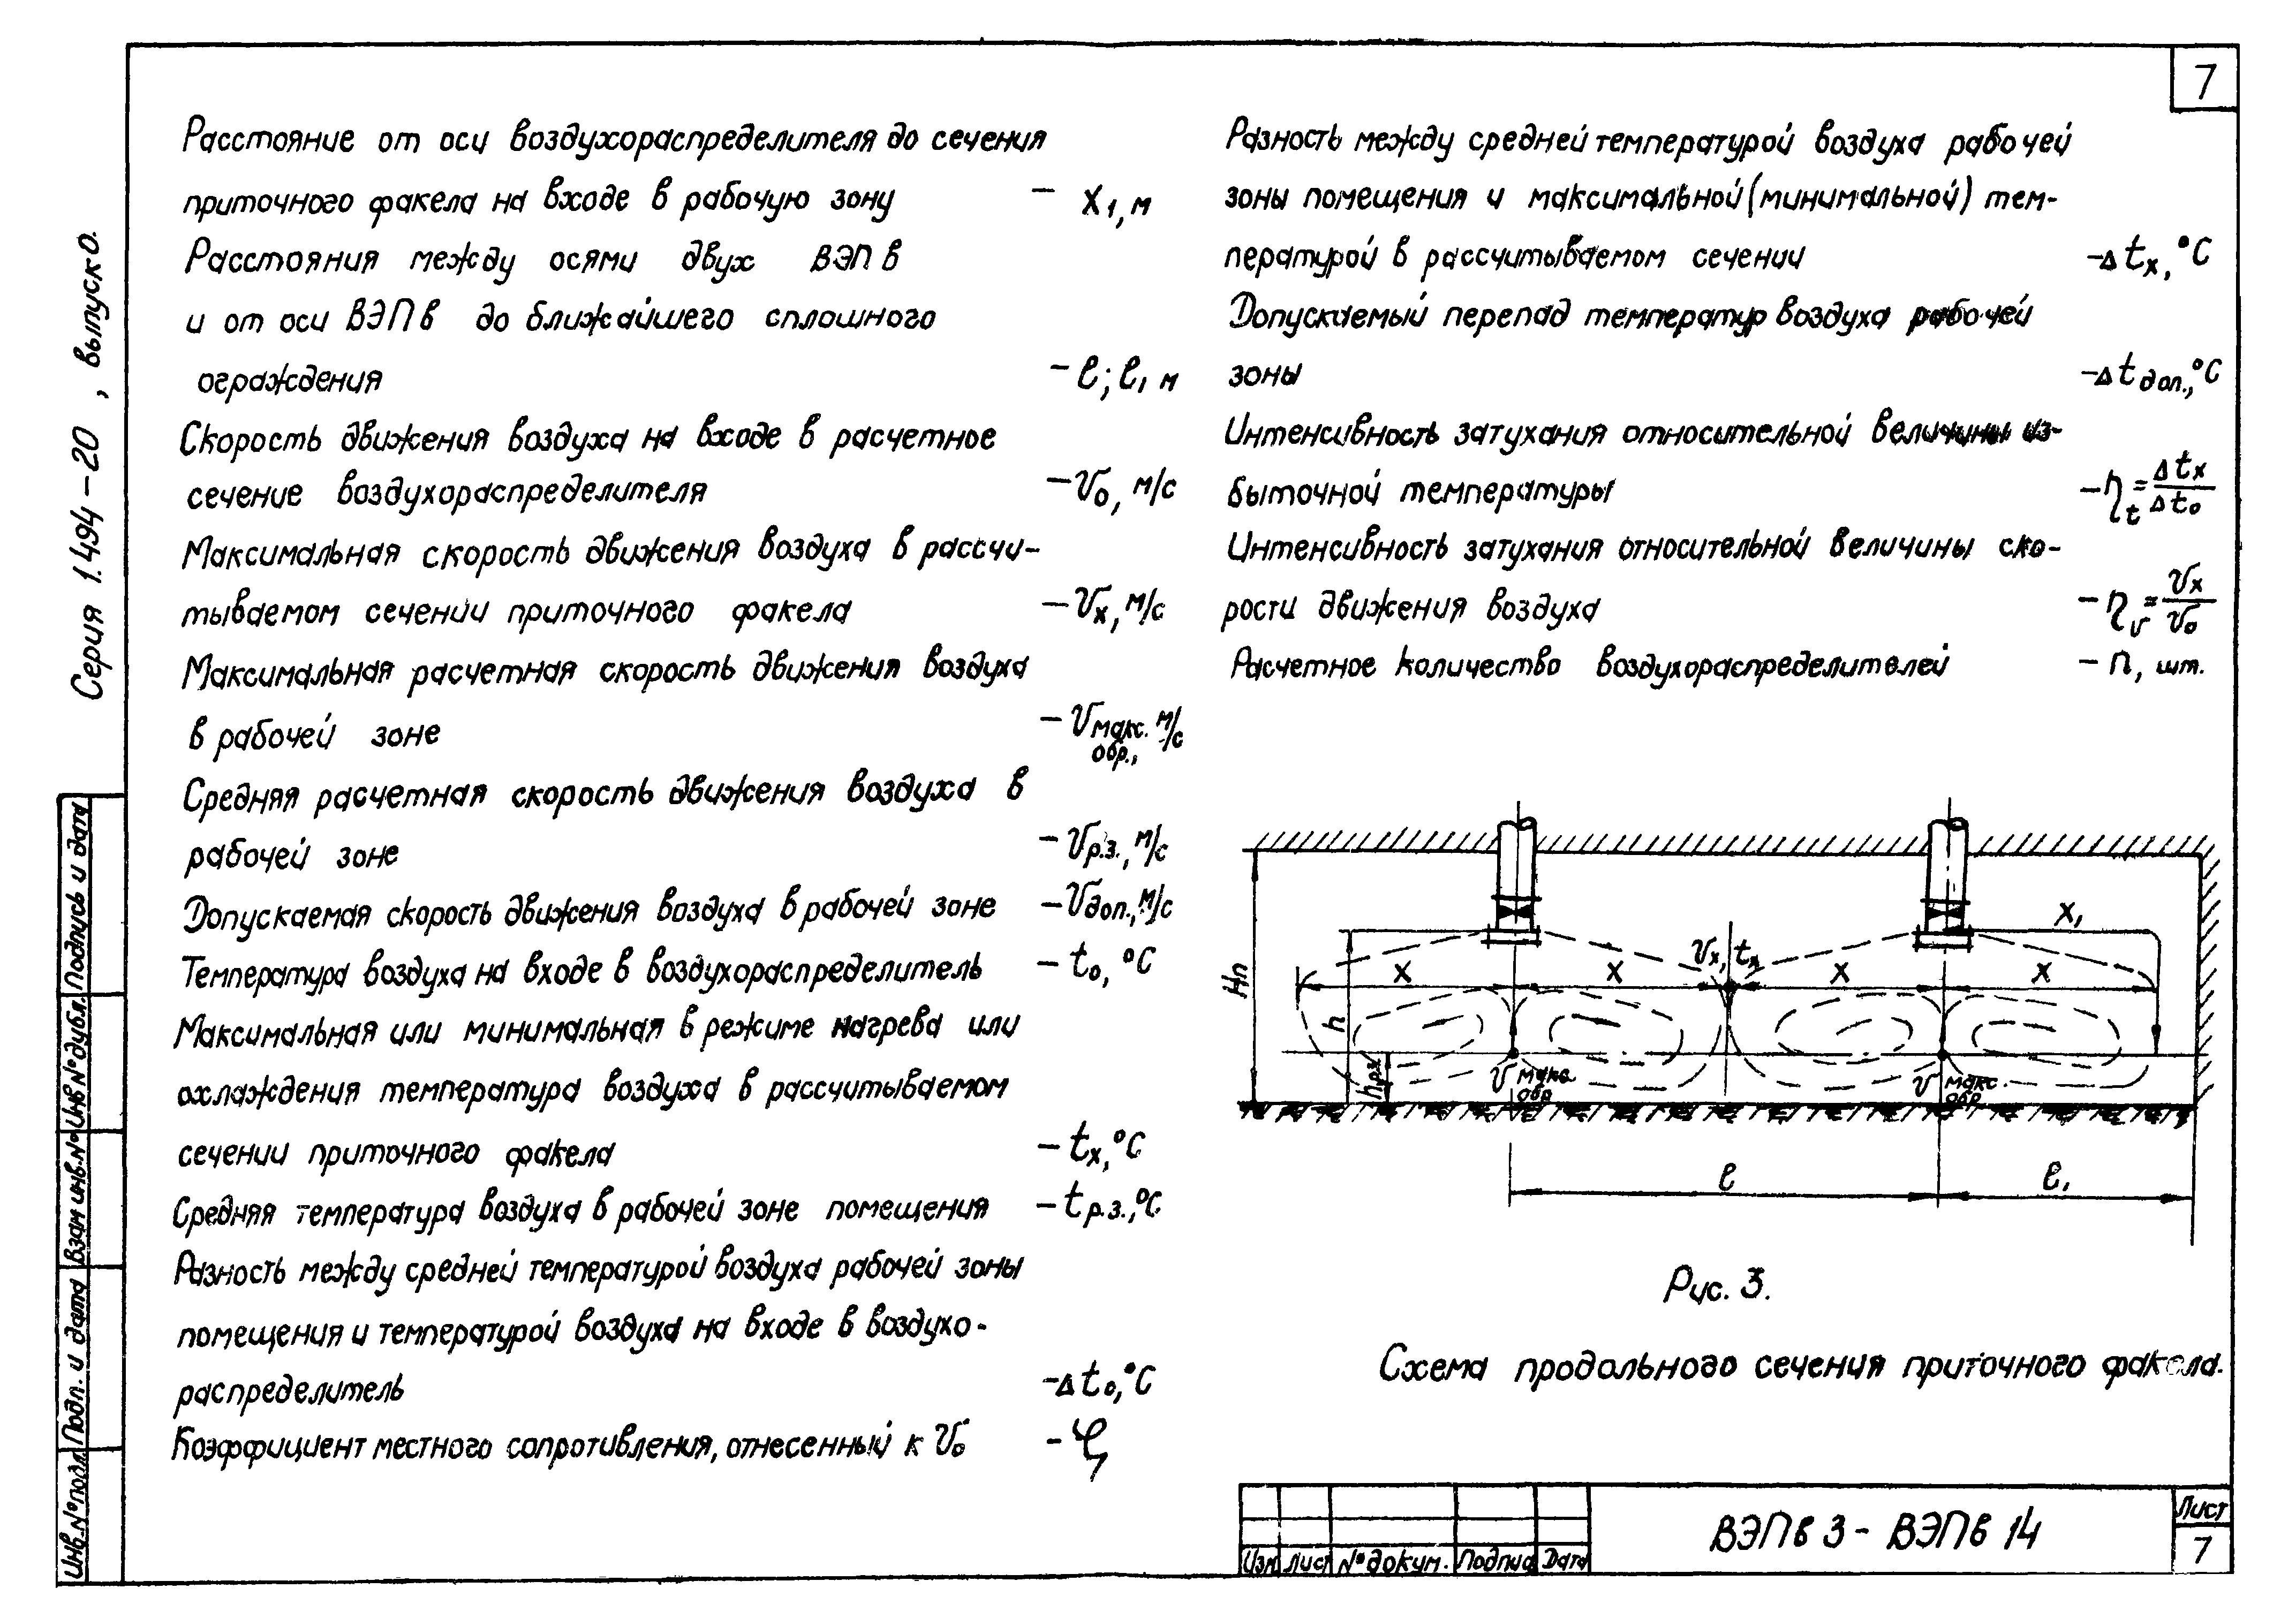 7
Расстояние от оси воздухораспределителя до сечения
приточного факела на входе в рабочую зону – x1, м
Расстояния между осями двух ВЭПв
и от оси ВЭПв до ближайшего сплошного
ограждения – ℓ; ℓ1 м
Скорость движения воздуха на входе в расчетное
сечение воздухораспределителя – v0, м/с
Максимальная скорость движения воздуха в рассчи-
тываемом сечении приточного факела – vx, м/с
Максимальная расчетная скорость движения воздуха
в рабочей зоне – vмакс. обр., м/с
Средняя расчетная скорость движения воздуха в
рабочей зоне – vр.з., м/с
Допускаемая скорость движения воздуха в рабочей зоне – vдоп., м/с
Температура воздуха на входе в воздухораспределитель – t0, °C
Максимальная или минимальная в режиме нагрева или
охлаждения температура воздуха в рассчитываемом
сечении приточного факела – tx, °C
Средняя температура воздуха в рабочей зоне помещения – tр.з., °C
Разность между средней температурой воздуха рабочей зоны
помещения и температурой воздуха на входе в воздухо-
распределитель – Δt0, °C
Коэффициент местного сопротивления, отнесенный к v0 –
Разность между средней температурой воздуха рабочей
зоны помещения и максимальной (минимальной) тем-
пературой в рассчитываемом сечении – Δtx, °C
Допускаемый перепад температур воздуха рабочей
зоны – Δtдоп., °C
Интенсивность затухания относительной величины из-
быточной температуры – ηt = Δtx/Δt0
Интенсивность затухания относительной величины ско-
рости движения воздуха – ηv = vx/v0
Расчетное количество воздухораспределителей – n, шт.
Hп
h
hр.з.
x x x x
x1
vx, tx
vмакс. обр.
vмакс. обр.
ℓ ℓ1
Рис. 3.
Схема продольного сечения приточного факела.
Изм Лист № докум. Подпис Дата
ВЭПв 3 – ВЭПв 14
Лист
7
Серия 1.494-20, выпуск 0.
Подпись и дата
Инв № дубл.
Взам инв. №
Подп. и дата
Инв. № подл